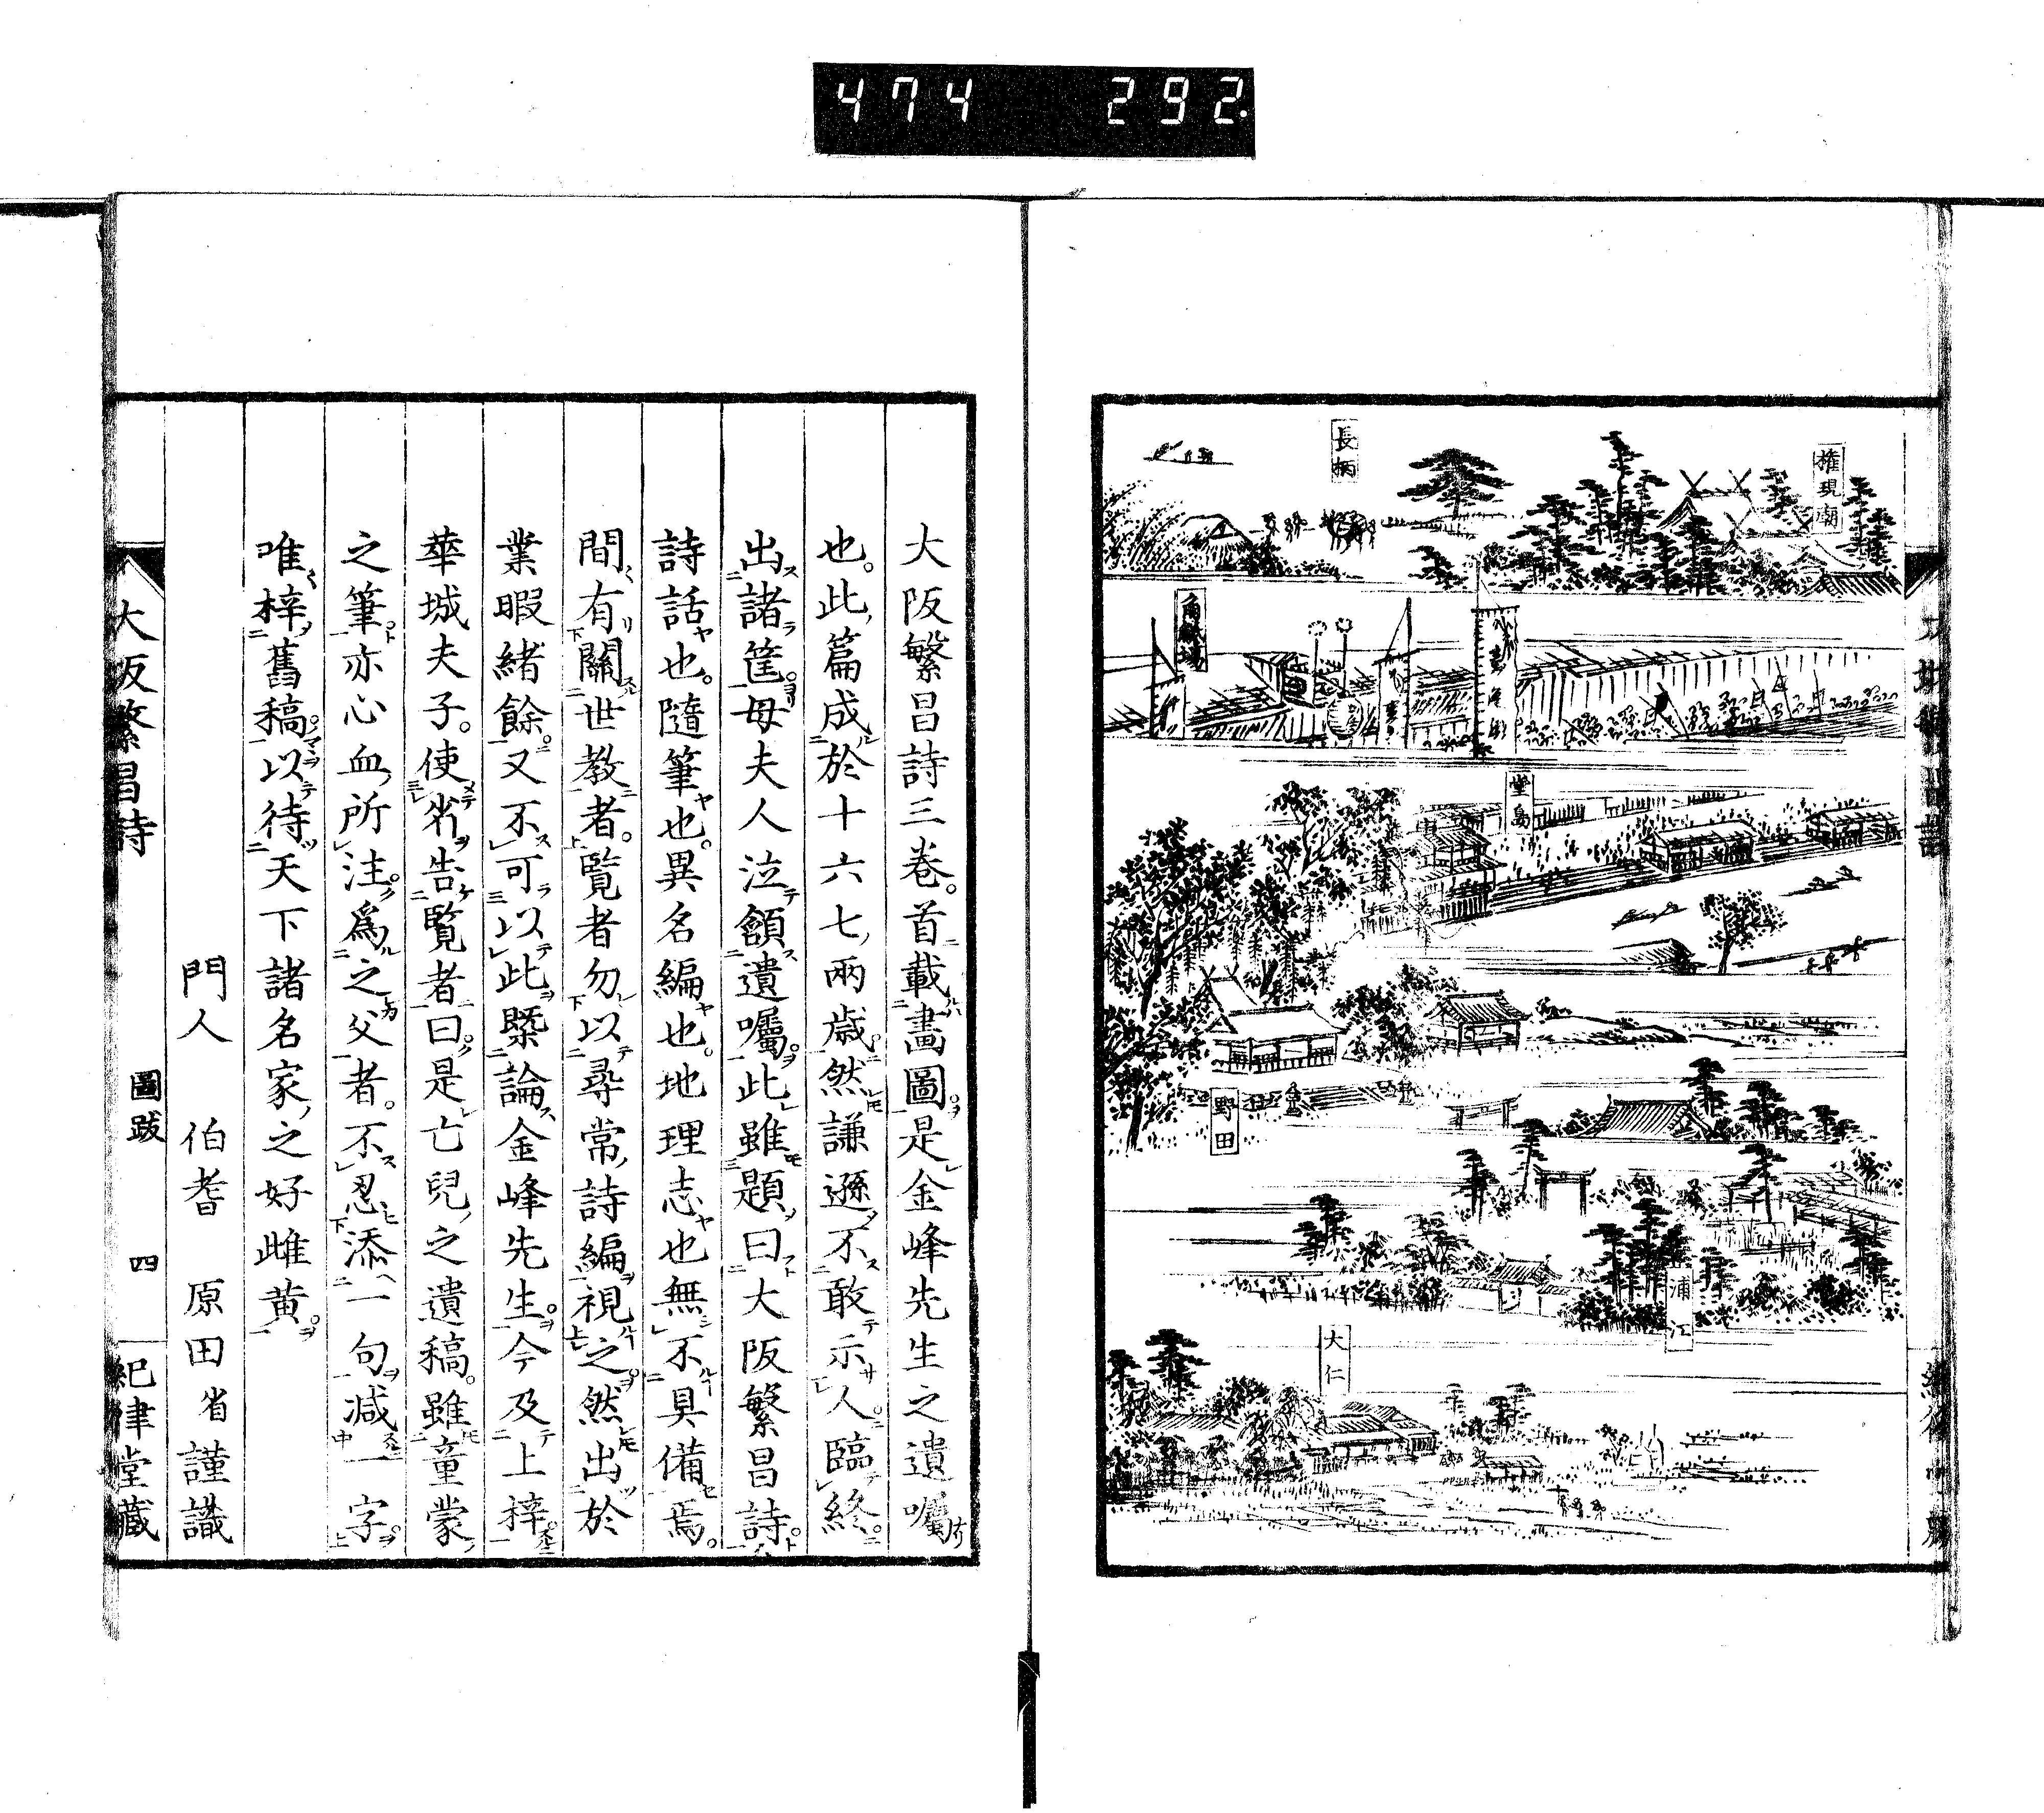 474 292.
権現廟
長柄
角觝場
堂島
野田
浦江
大仁
大阪繁昌詩三巻。首載畫圖是金峰先生之遺囑
也。此篇成於十六七兩歳然謙遜不敢示人臨終
出諸筐母夫人泣額遺囑此雖題曰大阪繁昌詩
詩話也。隨筆也。異名編也。地理志也無不具備焉。
間有關世教者。覽者勿以尋常詩編視之然出於
業暇緒餘又不可以此槩論金峰先生今及上梓
華城夫子。使省告覽者曰是亡兒之遺稿。雖童蒙
之筆亦心血所注爲之父者。不忍添一句減一字
唯梓舊稿以待天下諸名家之好雌黄。
門人 伯耆 原田省謹識
大阪繁昌詩 圖跋 四 紀律堂藏